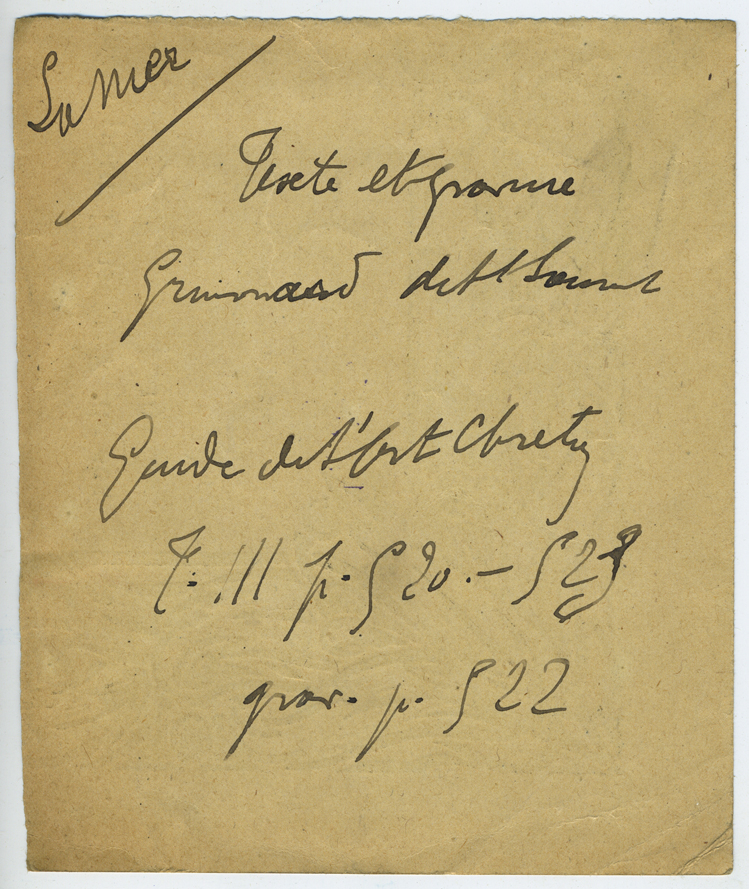 La Mer
Texte et gravure
Grimouard de St Laurent
Guide de l'Art Chretien
T. III p. 520. – 523
grav. p. 522